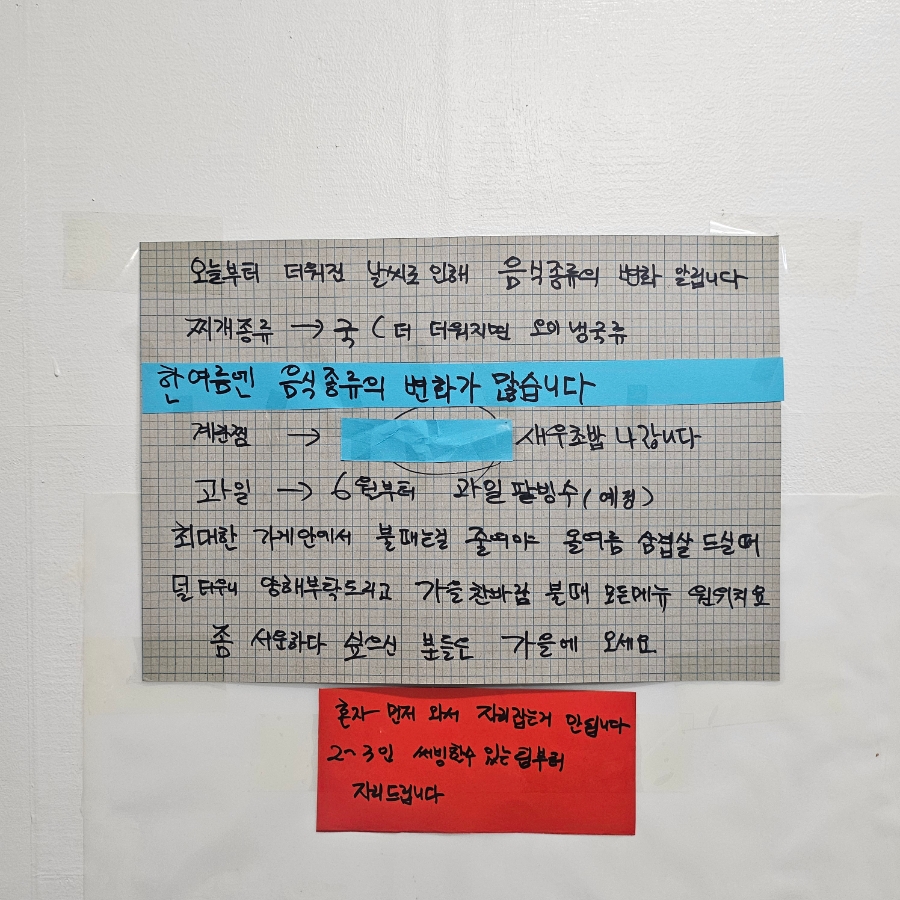 오늘부터 더워진 날씨로 인해 음식종류의 변화 알립니다
찌개종류 → 국 ( 더 더워지면 오이냉국류
한여름엔 음식종류의 변화가 많습니다
계란찜 → 새우초밥 나갑니다
과일 → 6월부터 과일팥빙수 (예정)
최대한 가게안에서 불때는걸 줄여야 올여름 삼겹살 드실때
덜 더우니 양해부탁드리고 가을 찬바람 불때 모든메뉴 원위치요
좀 서운하다 싶으신 분들은 가을에 오세요
혼자 먼저 와서 자리잡는거 안됩니다
2~3인 써빙할수 있는팀부터
자리드립니다